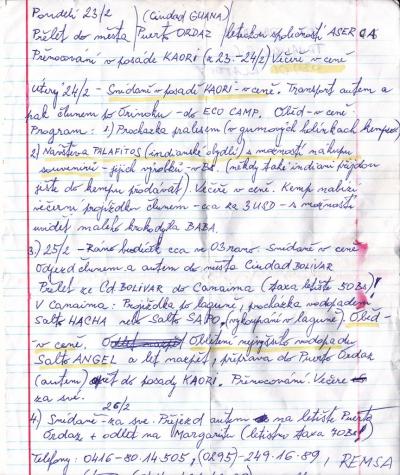 Pondělí 23/2 (Ciudad GUANA)
Přelet do města Puerto ORDAZ /leteckou společností ASERCA
Přenocování v posádě KAORI (z 23.-24/2) Večeře v ceně
Úterý 24/2 - Snídaně v posadě KAORI - v ceně. Transport autem a
pak člunem po Orinoku - do ECO CAMP. Oběd - v ceně.
Program: 1) Procházka pralesem (v gumových holínkách kempu)
2) Návštěva PALAFITOS (indiánské obydlí) s možností nákupu
souvenirů - jejich výrobků - v Bs. (někdy také indiáni přijdou
ještě do kempu prodávat) Večeře v ceně. Kemp nabízí
večerní projížďku člunem - cca za 3 USD - s možností
vidět malého krokodýla BABA.
3) 25/2 - Ráno budíček cca v 03 ráno. Snídaně v ceně
Odjezd člunem a autem do města Ciudad BOLIVAR
Přelet ze Cd BOLIVAR do Canaima (taxa letiště 50Bs)!
V Canaima: Projížďka po laguně, procházka vodopádem
Salto HACHA nebo Salto SAPO, (vykoupání v laguně), Oběd -
v ceně. Obletění nejvyššího vodopádu
Salto ANGEL a let nazpět, příprava do Puerto Ordaz
(autem) opět do posady KAORI. Přenocování. Večeře
za své.
26/2
4) Snídaně - za své. Příjezd autem na letiště Puerto
Ordaz + odlet na Margaritu (letištní taxa 40Bs)
Telefony: 0416-80 14.505, (0295)-249.16.89, REMSA